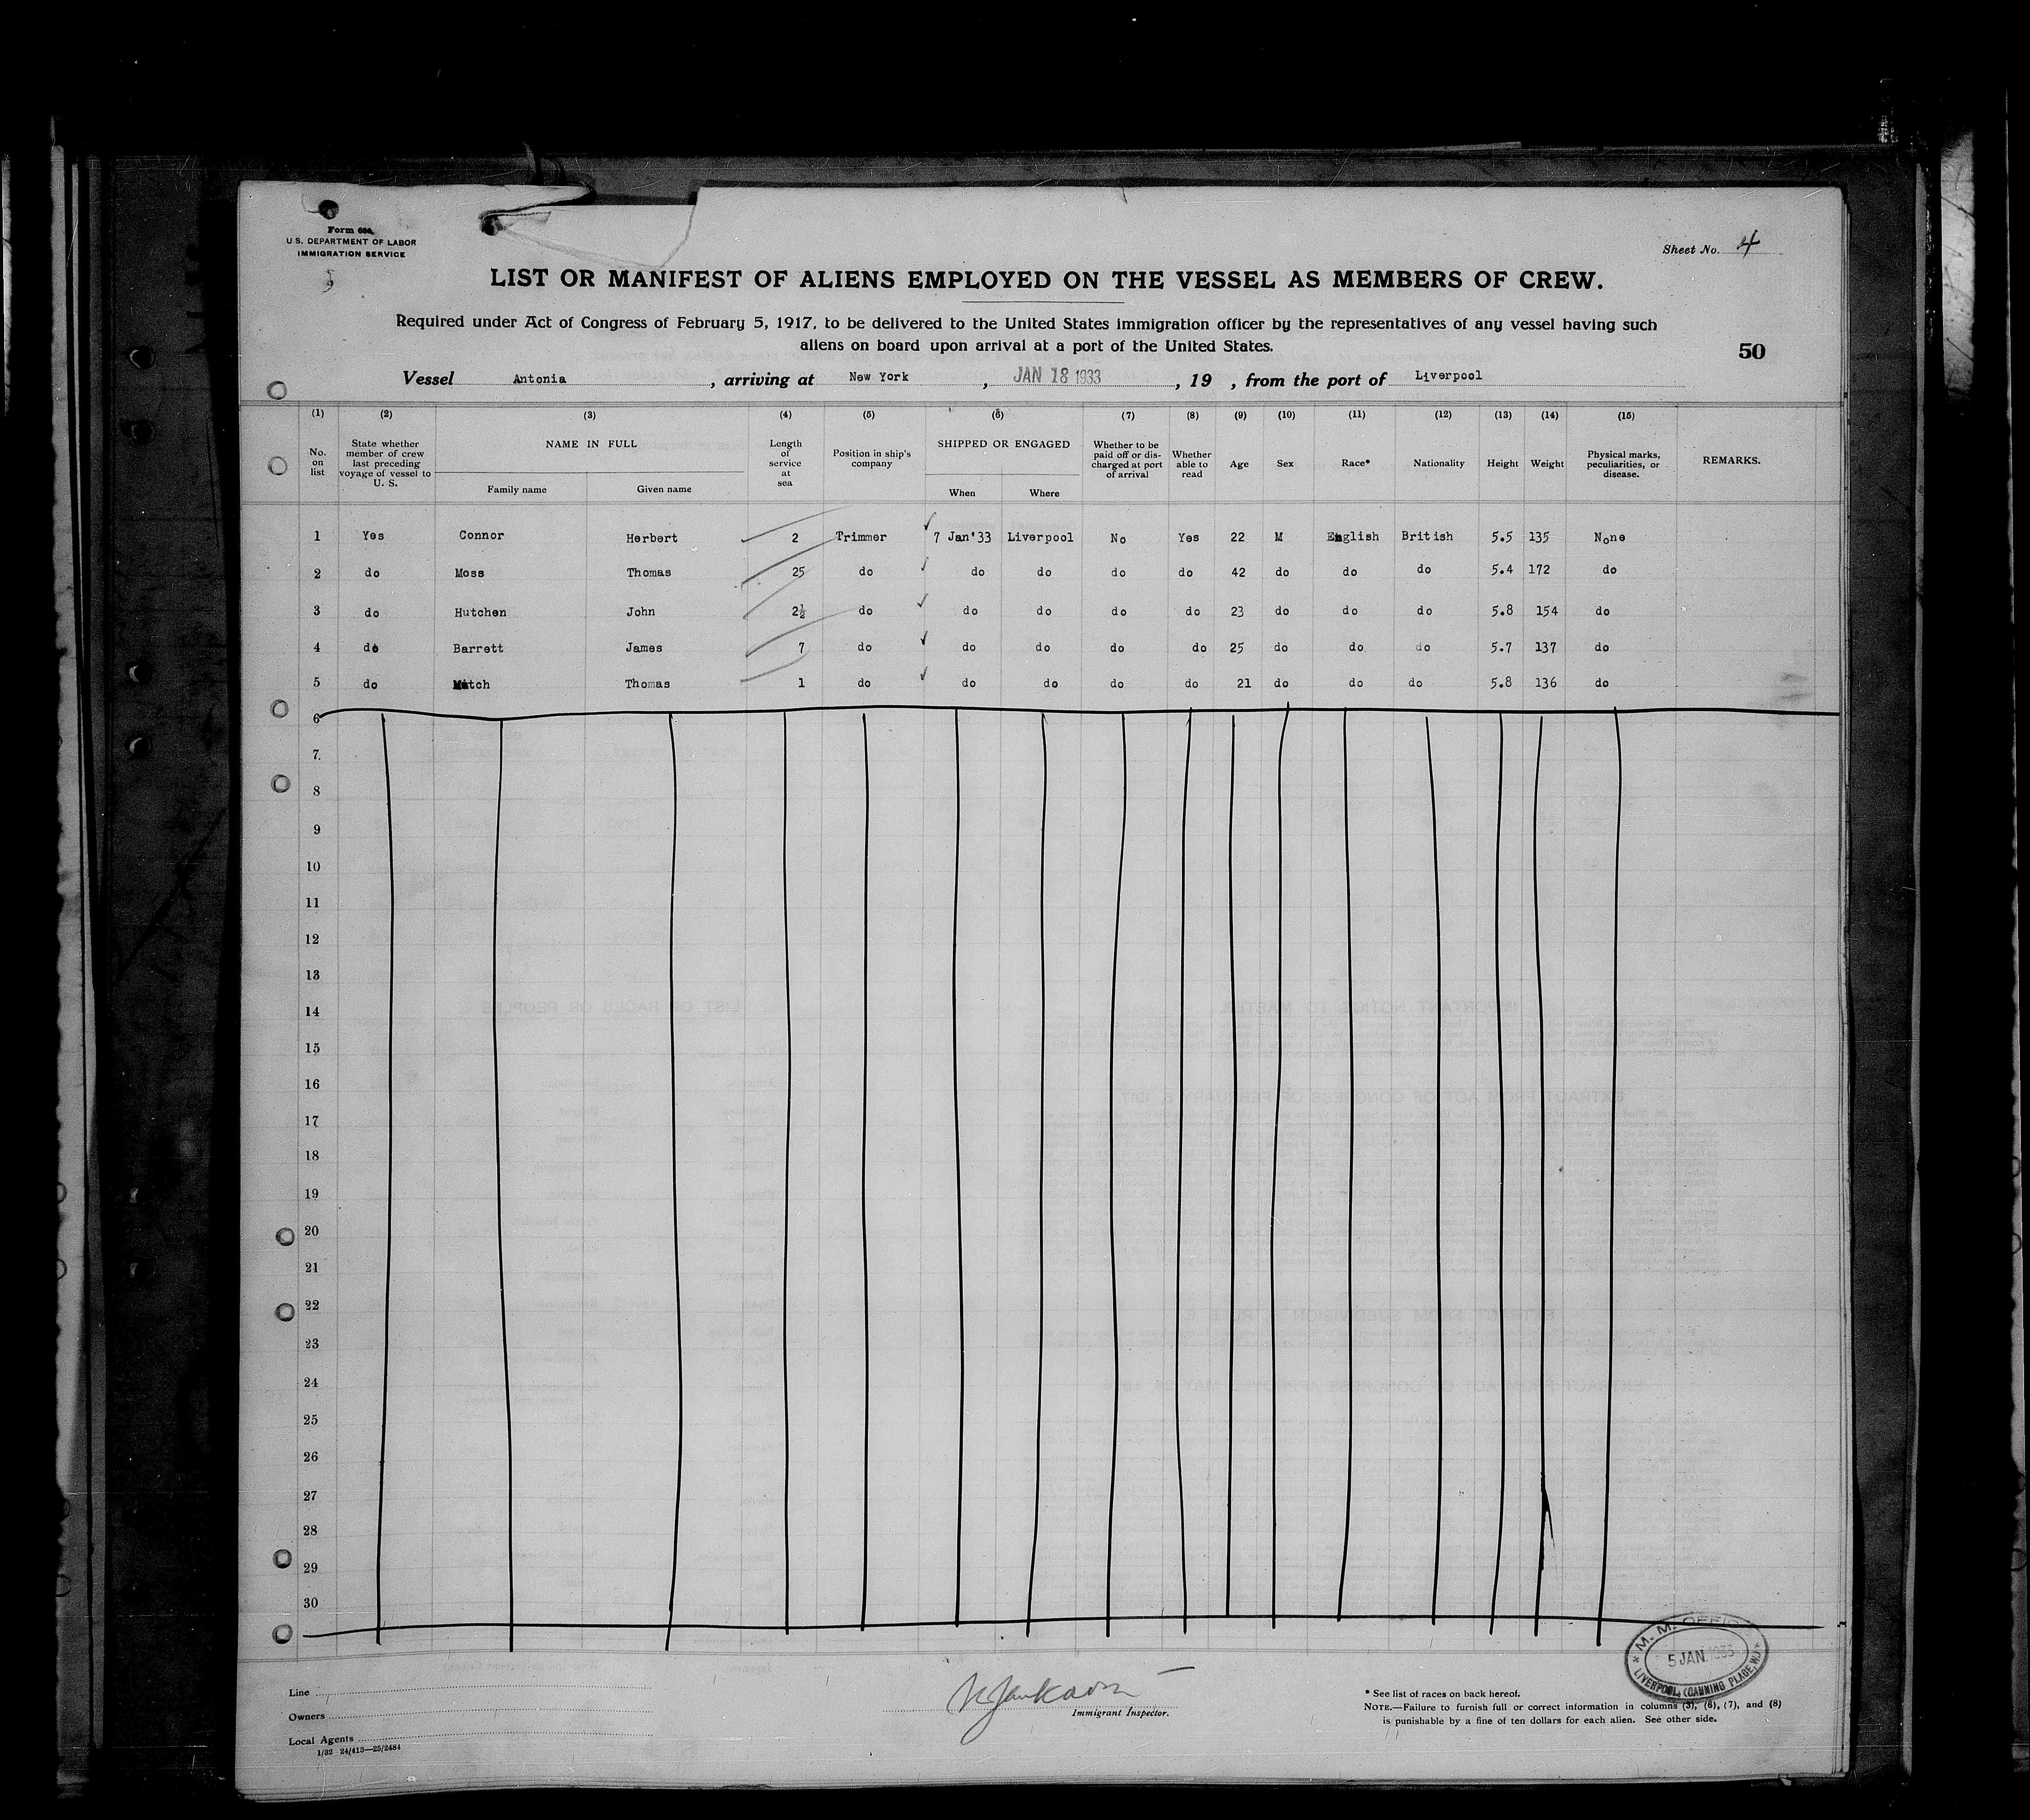 Form 680
U.S. DEPARTMENT OF LABOR
IMMIGRATION SERVICE
5
Sheet No. 4
LIST OR MANIFEST OF ALIENS EMPLOYED ON THE VESSEL AS MEMBERS OF CREW.
Required under Act of Congress of February 5, 1917, to be delivered to the United States immigration officer by the representatives of any vessel having such
aliens on board upon arrival at a port of the United States.
50
Vessel Antonia, arriving at New York, JAN 18 1933, 19 , from the port of Liverpool
(1) (2) (3) (4) (5) (6) (7) (8) (9) (10) (11) (12) (13) (14) (15)
No. on list State whether member of crew last preceding voyage of vessel to U. S. NAME IN FULL Family name Given name Length of service at sea Position in ship's company SHIPPED OR ENGAGED When Where Whether to be paid off or discharged at port of arrival Whether able to read Age Sex Race* Nationality Height Weight Physical marks, peculiarities, or disease. REMARKS.
1 Yes Connor Herbert 2 Trimmer 7 Jan'33 Liverpool No Yes 22 M English British 5.5 135 None
2 do Moss Thomas 25 do do do do do 42 do do do 5.4 172 do
3 do Hutchen John 2½ do do do do do 23 do do do 5.8 154 do
4 do Barrett James 7 do do do do do 25 do do do 5.7 137 do
5 do Thomas 1 do do do do do 21 do do do 5.8 136 do
6
7
8
9
10
11
12
13
14
15
16
17
18
19
20
21
22
23
24
25
26
27
28
29
30
M. M. OFFICE
5 JAN. 1933
LIVERPOOL (CANNING PLACE, W.)
Line
Owners
Local Agents
1/32 24/413—25/2484
Immigrant Inspector.
* See list of races on back hereof.
NOTE.—Failure to furnish full or correct information in columns (3), (6), (7), and (8)
is punishable by a fine of ten dollars for each alien. See other side.